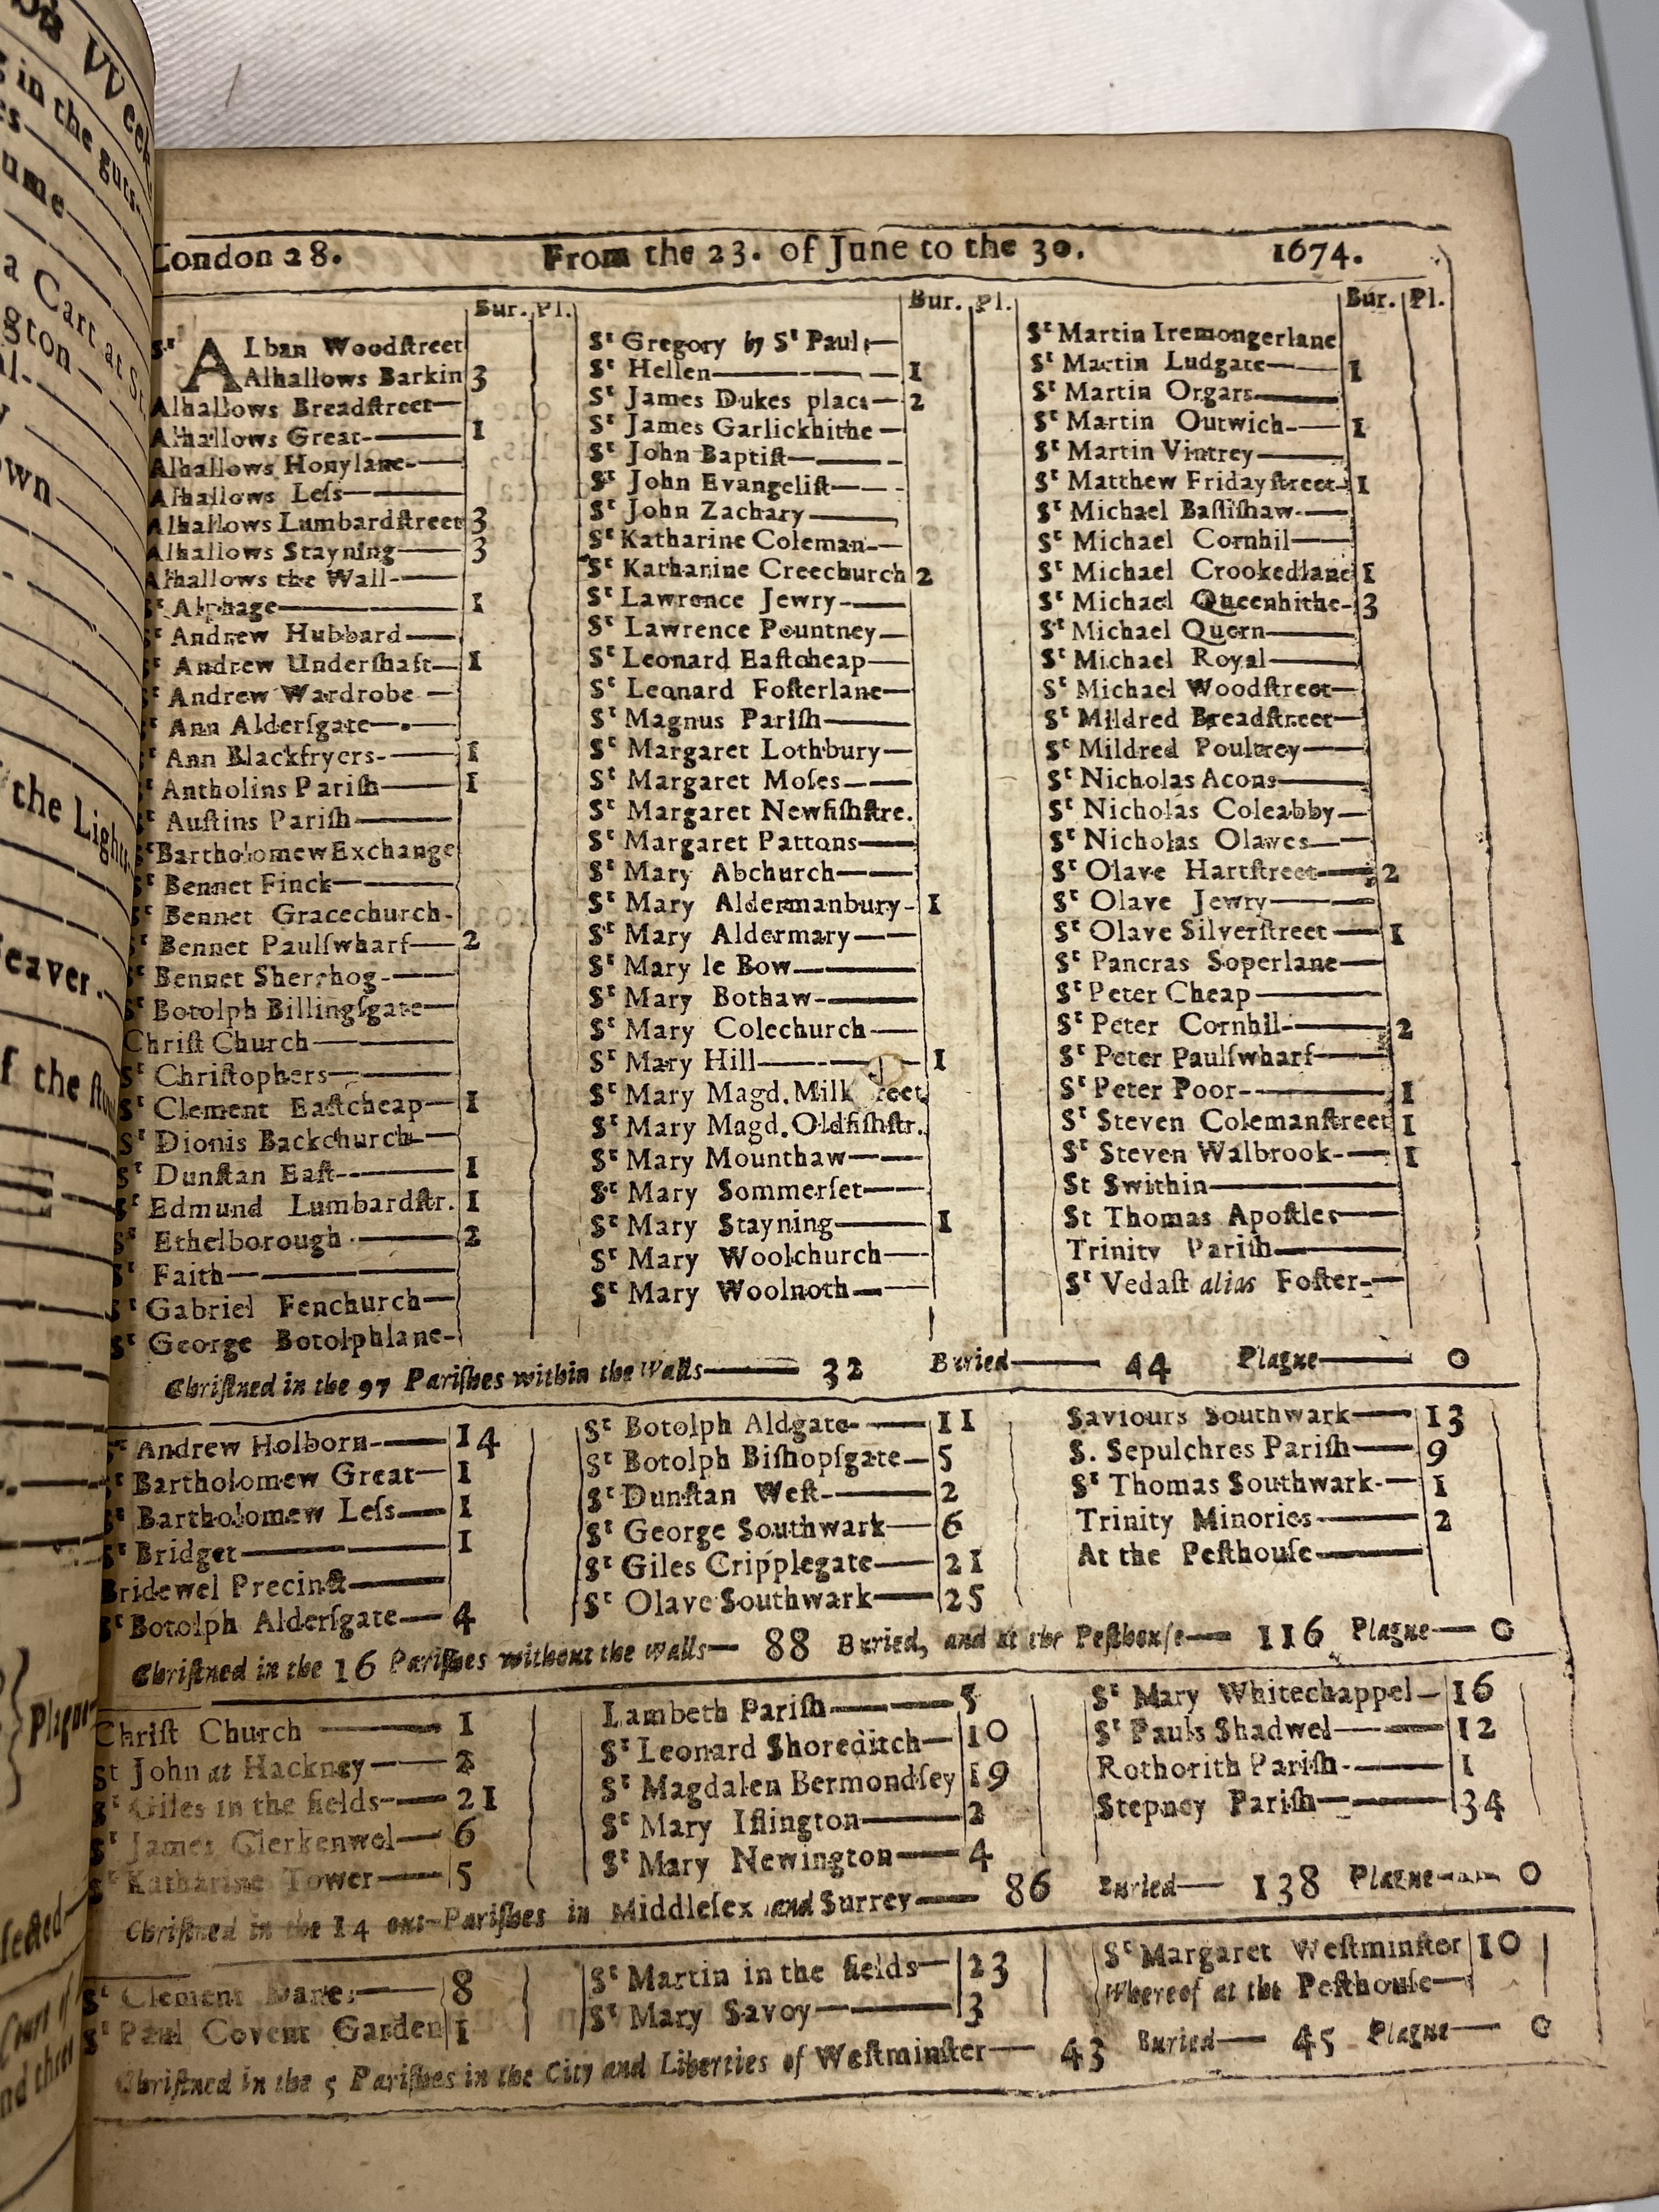 London 28. From the 23. of June to the 30. 1674.
Bur. Pl.
Sᵗ ALban Woodſtreet
Alhallows Barkin 3
Alhallows Breadſtreet—
Alhallows Great-— 1
Alhallows Honylane-—
Alhallows Leſs—
Alhallows Lumbardſtreet 3
Alhallows Stayning— 3
Alhallows the Wall-—
Sᵗ Alphage— 1
Sᵗ Andrew Hubbard—
Sᵗ Andrew Underſhaft— 1
Sᵗ Andrew Wardrobe —
Sᵗ Ann Alderſgate—
Sᵗ Ann Blackfryers-— 1
Sᵗ Antholins Pariſh— 1
Sᵗ Auſtins Pariſh—
Sᵗ Bartholomew Exchange
Sᵗ Bennet Finck—
Sᵗ Bennet Gracechurch-
Sᵗ Bennet Paulſwharf— 2
Sᵗ Bennet Sherehog-—
Sᵗ Botolph Billingſgate—
Chriſt Church—
Sᵗ Chriſtophers—
Sᵗ Clement Eaſtcheap— 1
Sᵗ Dionis Backchurch-—
Sᵗ Dunſtan Eaſt-— 1
Sᵗ Edmund Lumbardſtr. 1
Sᵗ Ethelborough— 2
Sᵗ Faith—
Sᵗ Gabriel Fenchurch—
Sᵗ George Botolphlane-
Bur. Pl.
Sᵗ Gregory by Sᵗ Pauls—
Sᵗ Hellen— 1
Sᵗ James Dukes place— 2
Sᵗ James Garlickhithe —
Sᵗ John Baptiſt—
Sᵗ John Evangeliſt—
Sᵗ John Zachary—
Sᵗ Katharine Coleman-—
Sᵗ Katharine Creechurch 2
Sᵗ Lawrence Jewry-—
Sᵗ Lawrence Pountney—
Sᵗ Leonard Eaſtcheap—
Sᵗ Leonard Foſterlane—
Sᵗ Magnus Pariſh—
Sᵗ Margaret Lothbury—
Sᵗ Margaret Moſes—
Sᵗ Margaret Newfiſhſtre.
Sᵗ Margaret Pattons—
Sᵗ Mary Abchurch—
Sᵗ Mary Aldermanbury- 1
Sᵗ Mary Aldermary—
Sᵗ Mary le Bow—
Sᵗ Mary Bothaw-—
Sᵗ Mary Colechurch—
Sᵗ Mary Hill— 1
Sᵗ Mary Magd. Milk reet
Sᵗ Mary Magd. Oldfiſhſtr.
Sᵗ Mary Mounthaw—
Sᵗ Mary Sommerſet—
Sᵗ Mary Stayning— 1
Sᵗ Mary Woolchurch—
Sᵗ Mary Woolnoth—
Bur. Pl.
Sᵗ Martin Iremongerlane
Sᵗ Martin Ludgate— 1
Sᵗ Martin Orgars—
Sᵗ Martin Outwich-— 1
Sᵗ Martin Vintrey—
Sᵗ Matthew Fridayſtreet- 1
Sᵗ Michael Baſſiſhaw-—
Sᵗ Michael Cornhil—
Sᵗ Michael Crookedlane 1
Sᵗ Michael Queenhithe- 3
Sᵗ Michael Quern—
Sᵗ Michael Royal—
Sᵗ Michael Woodſtreet—
Sᵗ Mildred Breadſtreet—
Sᵗ Mildred Poultrey—
Sᵗ Nicholas Acons—
Sᵗ Nicholas Coleabby—
Sᵗ Nicholas Olaves—
Sᵗ Olave Hartſtreet— 2
Sᵗ Olave Jewry—
Sᵗ Olave Silverſtreet— 1
Sᵗ Pancras Soperlane—
Sᵗ Peter Cheap—
Sᵗ Peter Cornhil-— 2
Sᵗ Peter Paulſwharf—
Sᵗ Peter Poor-— 1
Sᵗ Steven Colemanſtreet 1
Sᵗ Steven Walbrook-— 1
St Swithin—
St Thomas Apoſtles—
Trinity Pariſh—
Sᵗ Vedaſt alias Foſter-—
Chriſtned in the 97 Pariſhes within the Walls— 32 Buried— 44 Plague— 0
Sᵗ Andrew Holborn-— 14
Sᵗ Bartholomew Great— 1
Sᵗ Bartholomew Leſs— 1
Sᵗ Bridget— 1
Bridewel Precinct—
Sᵗ Botolph Alderſgate— 4
Sᵗ Botolph Aldgate-— 11
Sᵗ Botolph Biſhopſgate— 5
Sᵗ Dunſtan Weſt-— 2
Sᵗ George Southwark— 6
Sᵗ Giles Cripplegate— 21
Sᵗ Olave Southwark— 25
Saviours Southwark— 13
S. Sepulchres Pariſh— 9
Sᵗ Thomas Southwark-— 1
Trinity Minories— 2
At the Peſthouſe—
Chriſtned in the 16 Pariſhes without the walls— 88 Buried, and at the Peſthouſe— 116 Plague— 0
Chriſt Church — 1
St John at Hackney— 2
Sᵗ Giles in the fields-— 21
Sᵗ James Clerkenwel— 6
Sᵗ Katharine Tower— 5
Lambeth Pariſh— 5
Sᵗ Leonard Shoreditch— 10
Sᵗ Magdalen Bermondſey 19
Sᵗ Mary Iſlington— 2
Sᵗ Mary Newington— 4
Sᵗ Mary Whitechappel— 16
Sᵗ Pauls Shadwel— 12
Rothorith Pariſh-— 1
Stepney Pariſh— 34
Chriſtned in the 14 out-Pariſhes in Middleſex and Surrey— 86 Buried— 138 Plague— 0
Sᵗ Clement Danes— 8
Sᵗ Paul Covent Garden 1
Sᵗ Martin in the fields— 23
Sᵗ Mary Savoy— 3
Sᵗ Margaret Weſtminſter 10
Whereof at the Peſthouſe—
Chriſtned in the 5 Pariſhes in the City and Liberties of Weſtminſter— 43 Buried— 45 Plague— 0
in the guts-
a Cart at St.
the Light
eaver.
f the ſto
Plague